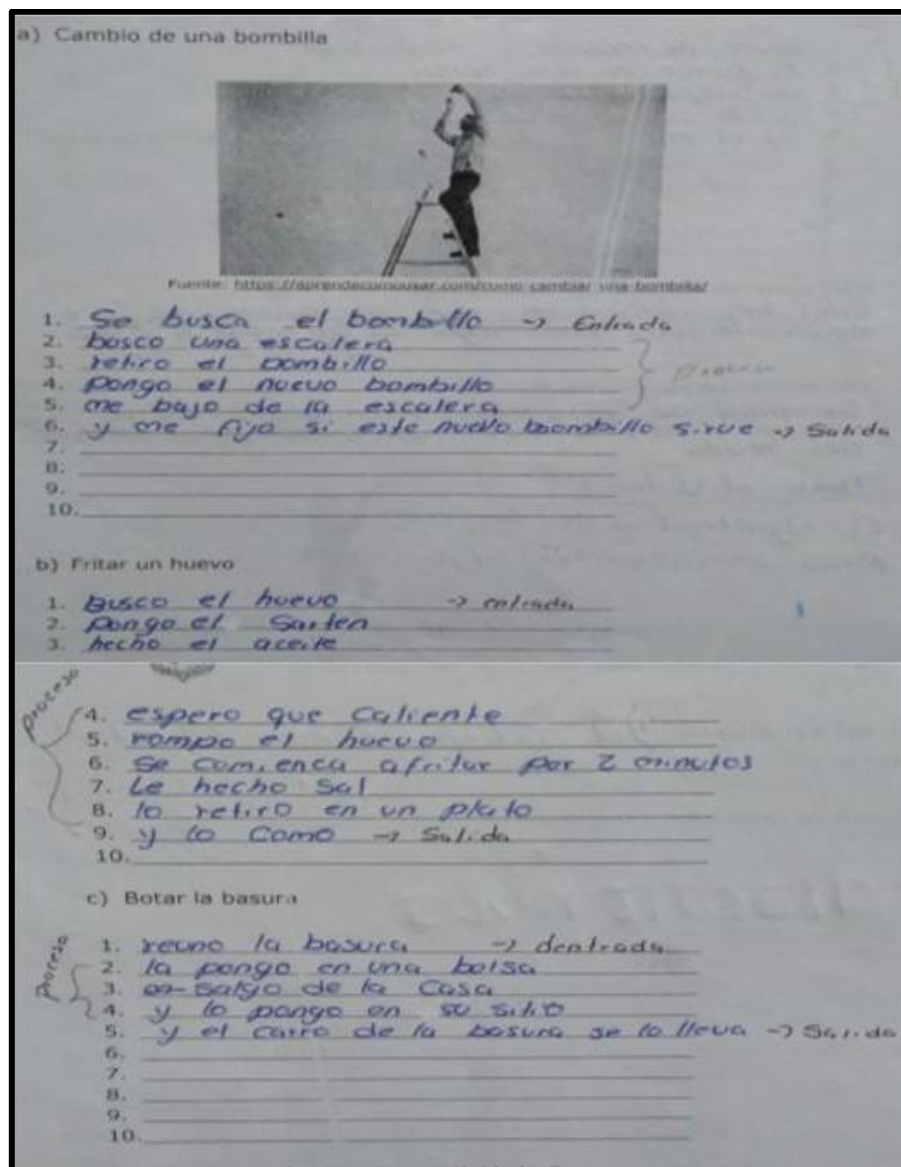 a) Cambio de una bombilla
Fuente: https://aprendecomousar.com/como-cambiar-una-bombilla/
1. Se busca el bombillo → Entrada
2. busco una escalera
3. retiro el bombillo
4. pongo el nuevo bombillo
proceso
5. me bajo de la escalera
6. y me fijo si este nuevo boombillo sirve → Salida
7.
8.
9.
10.
b) Fritar un huevo
1. Busco el huevo → entrada
2. pongo el Sarten
3. hecho el aceite
proceso
4. espero que caliente
5. rompo el huevo
6. se comienca a fritar por 2 minutos
7. Le hecho sal
8. lo retiro en un plato
9. y lo como → Salida
10.
c) Botar la basura
proceso
1. reuno la basura → dentrada
2. la pongo en una bolsa
3. salgo de la casa
4. y lo pongo en su sitio
5. y el carro de la basura se lo lleva → Salida
6.
7.
8.
9.
10.